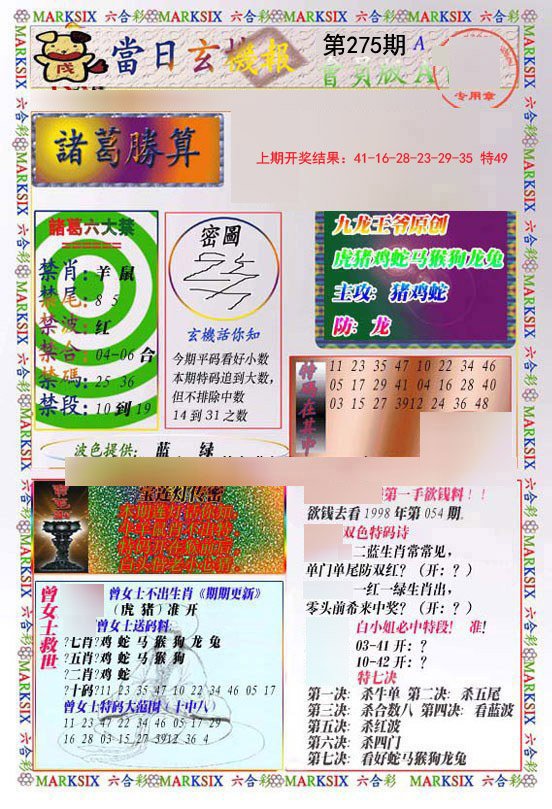 MARKSIX 六合彩 MARKSIX 六合彩 MARKSIX 六合彩 MARKSIX 六合彩
當日玄机機报
第275期 A
會員版A
专用章
諸葛勝算
上期开奖结果：41-16-28-23-29-35 特49
諸葛六大禁
禁肖：羊 鼠
禁尾：8 5
禁波：红
禁合：04-06 合
禁碼：25 36
禁段：10 到 19
密圖
玄機話你知
今期平码看好小数
本期特码追到大数，
但不排除中数
14 到 31 之数
九龙王爷原创
虎猪鸡蛇马猴狗龙兔
主攻：猪鸡蛇
防：龙
特码在其中
11 23 35 47 10 22 34 46
05 17 29 41 04 16 28 40
03 15 27 3912 24 36 48
波色提供：蓝 绿
宝莲灯传密
曾女士救世
曾女士不出生肖《期期更新》
(虎 猪) 准 开
曾女士送码料
?七肖?鸡 蛇 马 猴 狗 龙 兔
?五肖?鸡 蛇 马 猴 狗
?二肖?鸡 蛇
?十码?11 23 35 47 10 22 34 46 05 17
曾女士特码大范围 (十中八)
11 23 47 22 34 46 05 17 29 41
16 28 03 15 27 3912 36 4
第一手欲钱料！！
欲钱去看 1998 年第 054 期
双色特码诗
二蓝生肖常常见，
单门单尾防双红？（开：？）
一红一绿生肖出，
零头前希来中奖？（开：？）
白小姐必中特段！ 准！
03-41 开：？
10-42 开：？
特七决
第一决：杀牛单 第二决：杀五尾
第三决：杀合数八 第四决：看蓝波
第五决：杀红波
第六决：杀四门
第七决：看好蛇马猴狗龙兔
MARKSIX 六合彩 MARKSIX 六合彩 MARKSIX 六合彩 MARKSIX 六合彩